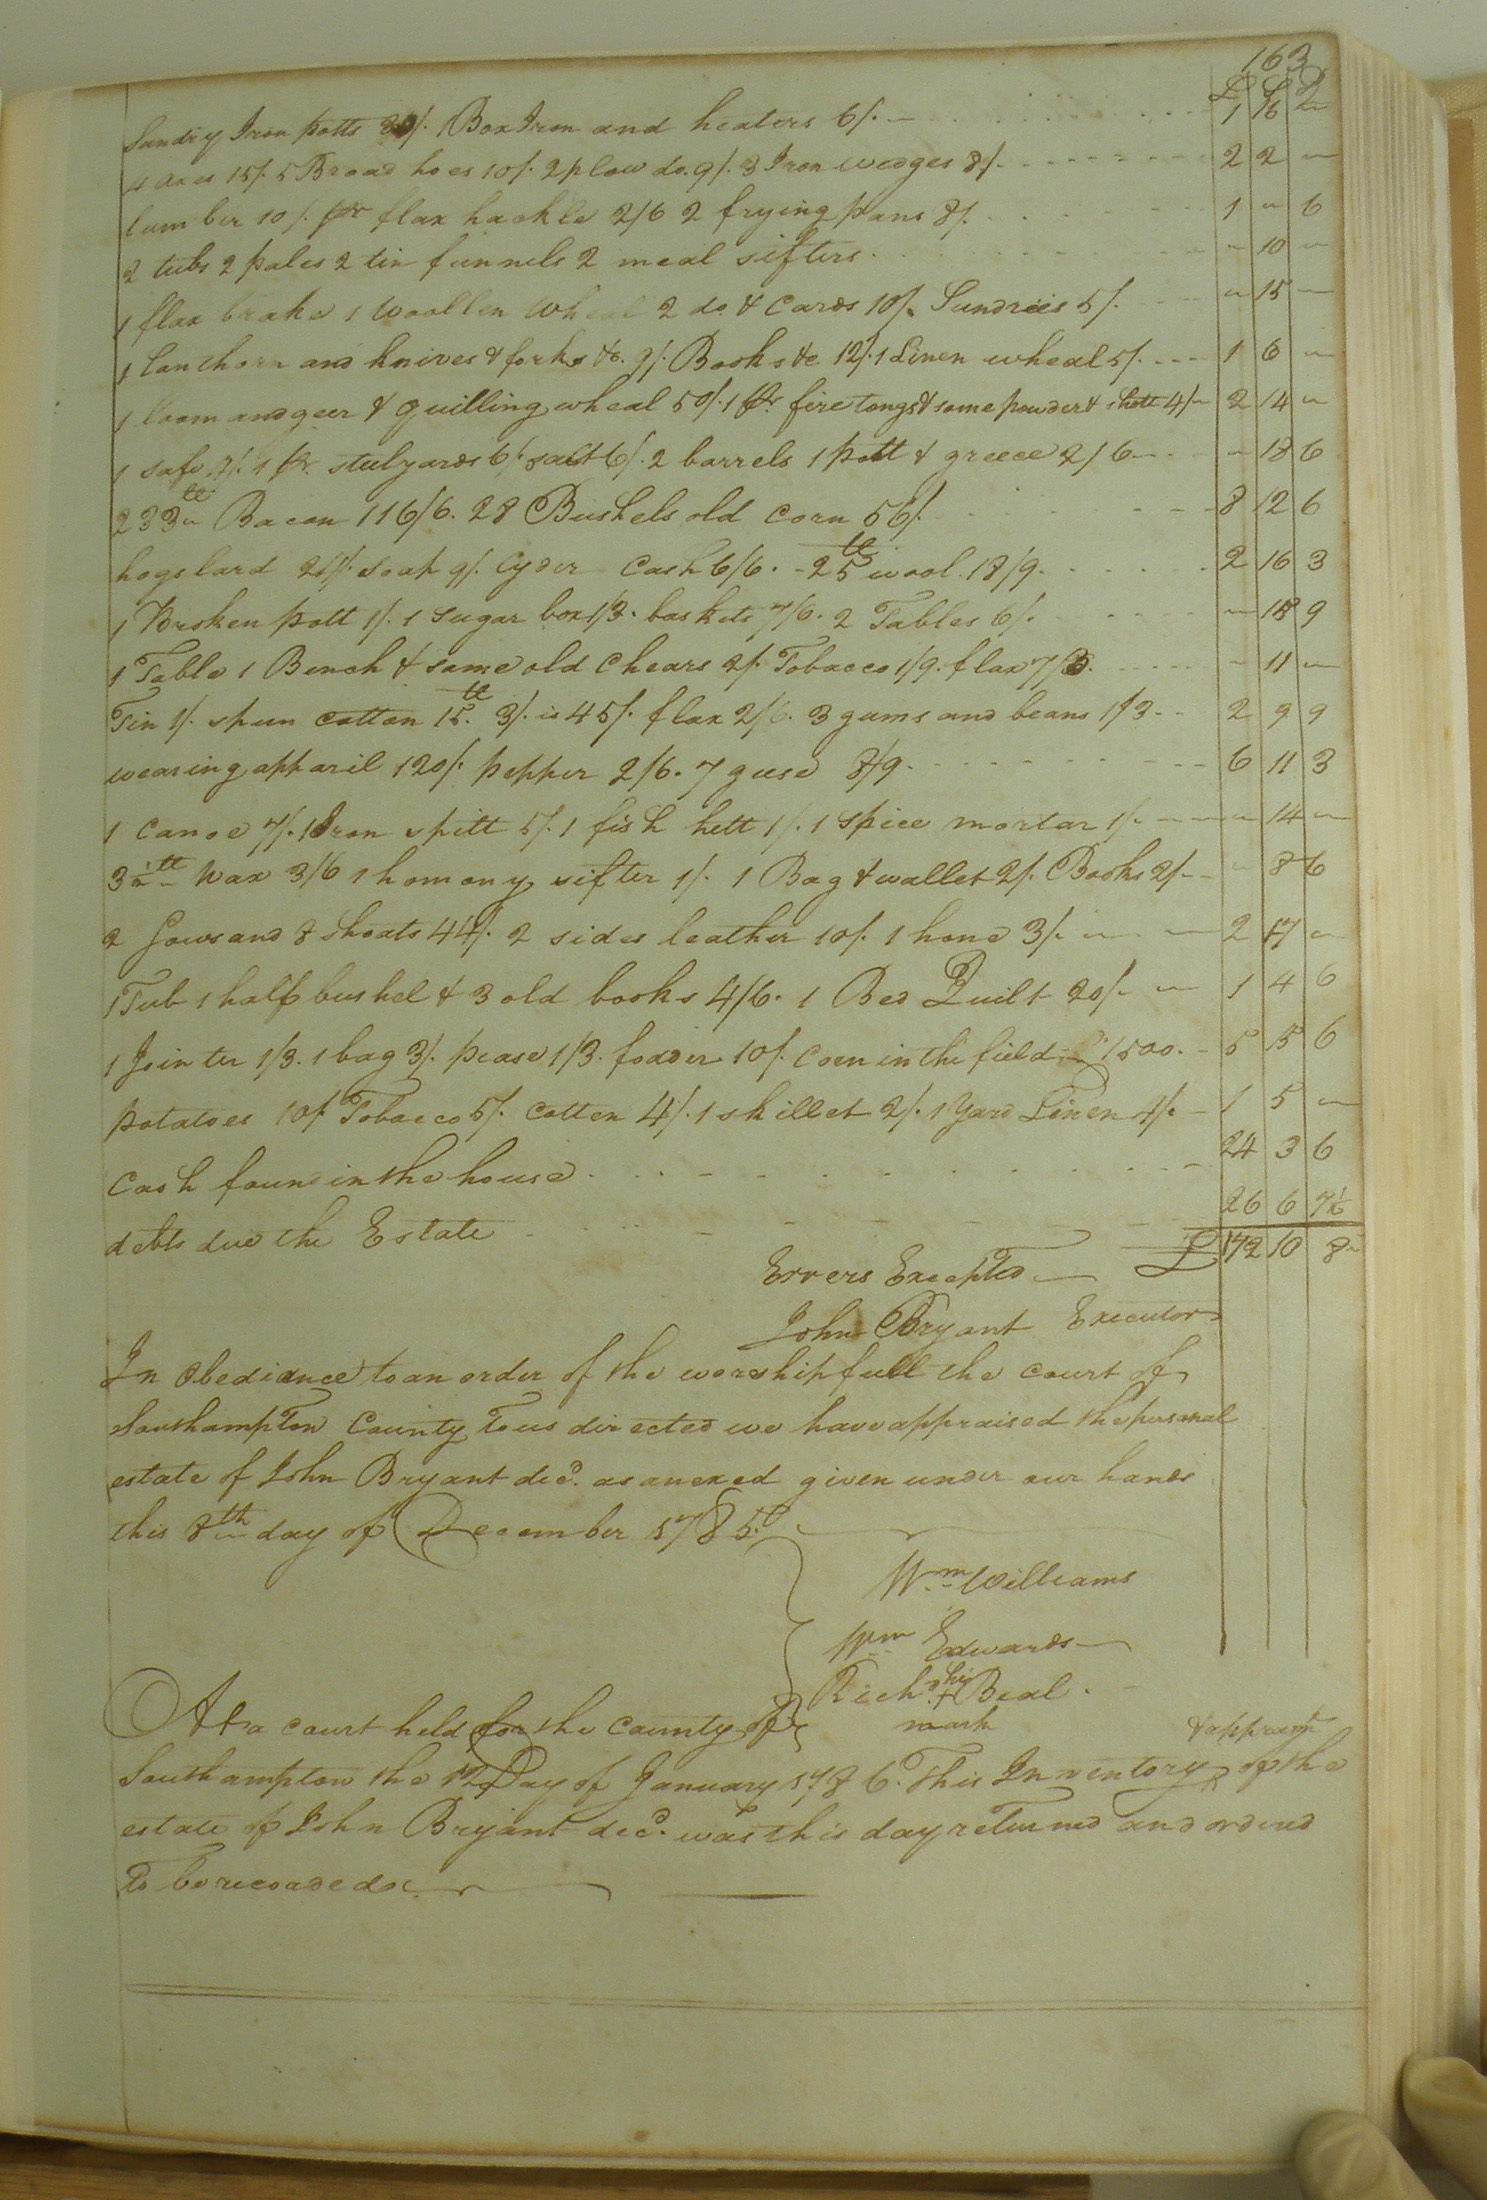 163
£ S D
Sundry Iron potts 30/. 1 Box Iron and heaters 6/. 1 16 "
4 axes 15/. 5 Broad hoes 10/. 2 plow do. 9/. 3 Iron wedges 8/. 2 2 "
lumber 10/. pr flax hackle 2/6 2 frying pans 8/. 1 " 6
2 tubs 2 pales 2 tin funnels 2 meal sifters. " 10 "
1 flax brake 1 woollen wheal 2 do & Cards 10/. Sundries 5/. " 15 "
1 lanthorn and knives & forks &c. 9/. Books &c 12/. 1 Linen wheal 5/. 1 6 "
1 loom and geer & quilling wheal 50/. 1 pr. fire tongs & some powder & shott 4/ 2 14 "
1 safe 4/. 1 pr. stulyards 6/. salt 6/. 2 barrels 1 pott & greece 2/6 " 18 6
233 lb Bacon 116/6. 28 Bushels old corn 56/. 8 12 6
hogs lard 21/. soap 9/. Cyder Cash 6/6. 25 lb wool 18/9. 2 16 3
1 Broken pott 1/. 1 sugar box 1/3. baskets 7/6. 2 Tables 6/. " 15 9
1 Table 1 Bench & some old Chears 2/. Tobacco 1/9. flax 7/3. " 11 "
Tin 1/. spun cotton 15 lb. 3/. is 45/. flax 2/6. 3 gums and beans 1/3 2 9 9
wearing apparil 120/. pepper 2/6. 7 geese 8/9. 6 11 3
1 Canoe 7/. 1 Iron spitt 5/. 1 fish kett 1/. 1 spice mortar 1/. " 14 "
3½ lb wax 3/6 1 homony sifter 1/. 1 Bag & wallet 2/. Books 2/ " 8 6
2 Sows and 8 shoats 44/. 2 sides leather 10/. 1 hone 3/. 2 17 "
1 Tub 1 half bushel & 3 old books 4/6. 1 Bed Quilt 20/ 1 4 6
1 Jointer 1/3. 1 bag 3/. pease 1/3. fodder 10/. Coen in the field 1500. 5 15 6
potatoes 10/. Tobacco 5/. Cotten 4/. 1 skillet 2/. 1 Yard Linen 4/. 1 5 "
Cash found in the house 24 3 6
debts due the Estate 26 6 7½
Errers Excepted £ 172 10 8
John Bryant Executor
In Obediance to an order of the worshipfull the court of
Southampton County to us directed we have appraised the personal
estate of John Bryant decd. as anexed given under our hands
this 8th day of December 1785.
Wm Williams
Wm Edwards
Richd his + Beal.
mark
At a court held for the county of
& appraismt
Southampton the 12 Day of January 1786. This Inventory of the
estate of John Bryant decd. was this day returned and ordered
To be recoaded